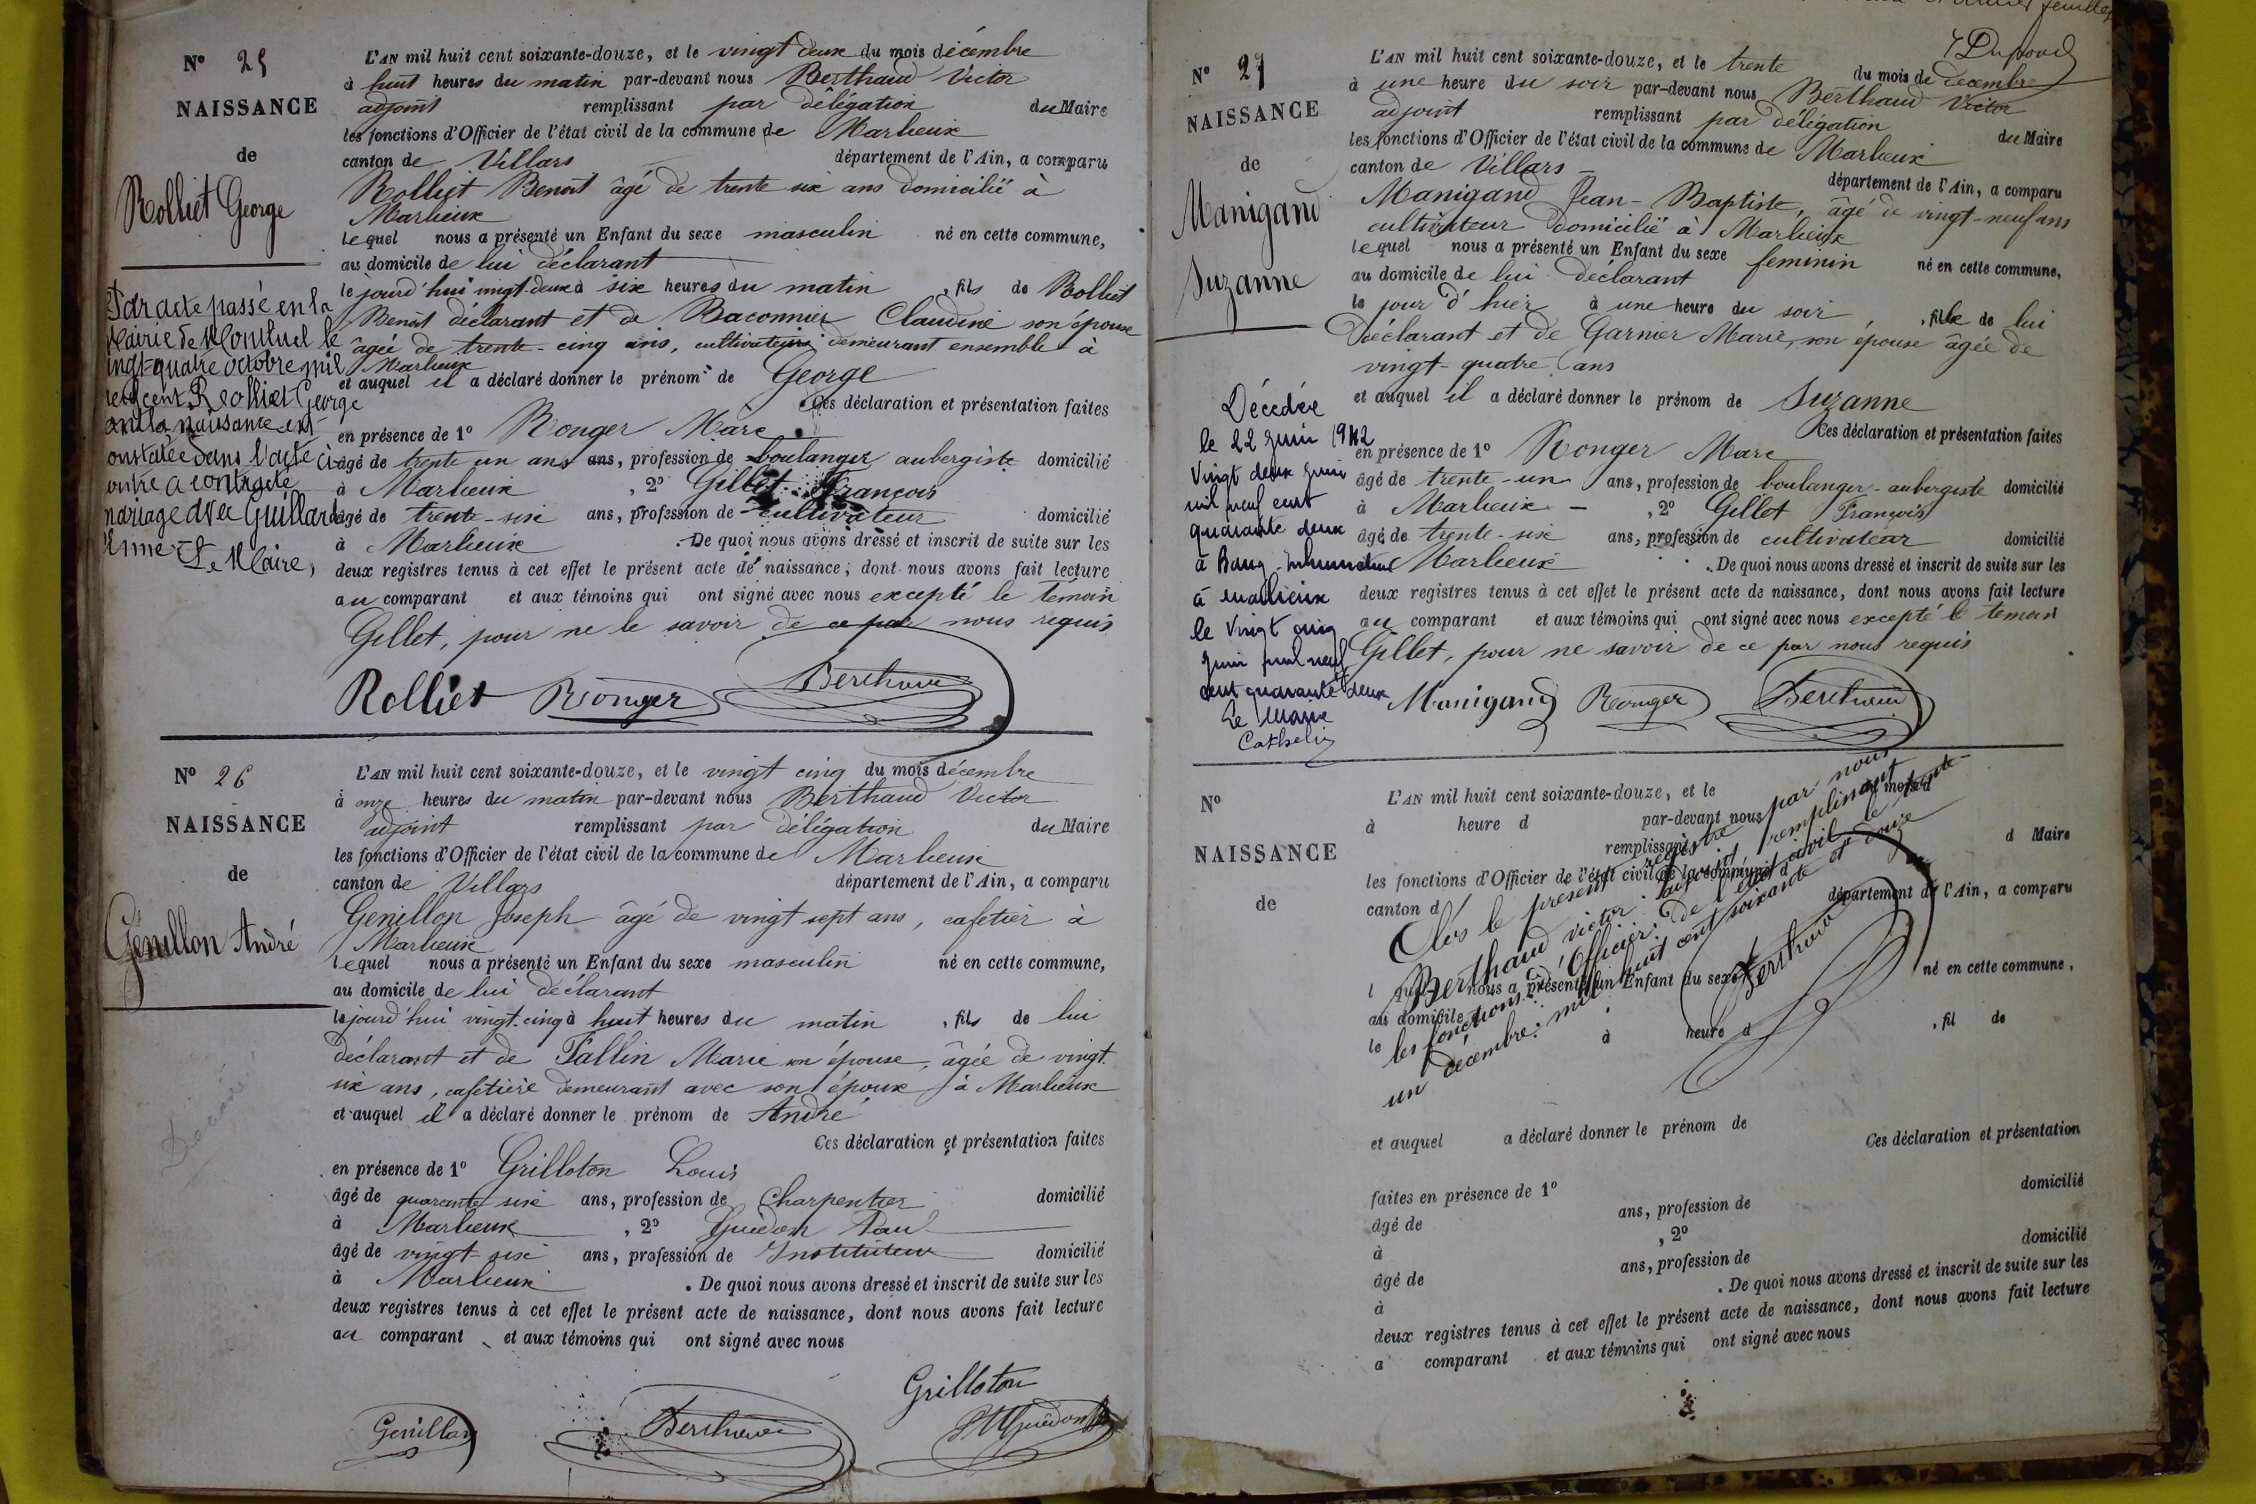 N° 25
NAISSANCE
de
Rolliet George
Par acte passé en la
Mairie de Montluel le
vingt-quatre octobre mil
neuf cent, Rolliet George
dont la naissance est
constatée dans l'acte ci-
contre a contracté
mariage avec Guillard
Le Maire,
L'AN mil huit cent soixante-douze, et le vingt deux du mois décembre
à huit heures du matin par-devant nous Berthaud Victor
adjoint remplissant par délégation du Maire
les fonctions d'Officier de l'état civil de la commune de Marlieux
canton de Villars département de l'Ain, a comparu
Rolliet Benoit âgé de trente six ans domicilié à
Marlieux
lequel nous a présenté un Enfant du sexe masculin né en cette commune,
au domicile de lui déclarant
le jourd'hui vingt-deux à six heures du matin, fils de Rolliet
Benoit déclarant et de Baconnier Claudine son épouse
âgée de trente-cinq ans, cultivateurs demeurant ensemble à
Marlieux
et auquel il a déclaré donner le prénom de George
Ces déclaration et présentation faites
en présence de 1° Ronger Marc
âgé de trente un ans ans, profession de boulanger aubergiste domicilié
à Marlieux, 2° Gillet François
âgé de trente-six ans, profession de cultivateur domicilié
à Marlieux. De quoi nous avons dressé et inscrit de suite sur les
deux registres tenus à cet effet le présent acte de naissance, dont nous avons fait lecture
au comparant et aux témoins qui ont signé avec nous excepté le témoin
Gillet, pour ne le savoir de ce par nous requis
Rolliet Ronger Berthaud
N° 26
NAISSANCE
de
Génillon André
L'AN mil huit cent soixante-douze, et le vingt cinq du mois décembre
à onze heures du matin par-devant nous Berthaud Victor
adjoint remplissant par délégation du Maire
les fonctions d'Officier de l'état civil de la commune de Marlieux
canton de Villars département de l'Ain, a comparu
Genillon Joseph âgé de vingt sept ans, cafetier à
Marlieux
lequel nous a présenté un Enfant du sexe masculin né en cette commune,
au domicile de lui déclarant
le jourd'hui vingt-cinq à huit heures du matin, fils de lui
déclarant et de Fallin Marie son épouse, âgée de vingt
six ans, cafetière demeurant avec son époux à Marlieux
et auquel il a déclaré donner le prénom de André
Ces déclaration et présentation faites
en présence de 1° Grilloton Louis
âgé de quarante six ans, profession de Charpentier domicilié
à Marlieux, 2° Guédon Paul
âgé de vingt-six ans, profession de Instituteur domicilié
à Marlieux. De quoi nous avons dressé et inscrit de suite sur les
deux registres tenus à cet effet le présent acte de naissance, dont nous avons fait lecture
au comparant et aux témoins qui ont signé avec nous
Grilloton
Genillon Berthaud Guédon
Dupond
N° 27
NAISSANCE
de
Manigand
Suzanne
Décédée
le 22 Juin 1942
Vingt deux Juin
mil neuf cent
quarante deux
à Bourg
à Marlieux
le vingt cinq
Juin mil neuf
cent quarante deux
Le Maire
Cathelin
L'AN mil huit cent soixante-douze, et le trente du mois de décembre
à une heure du soir par-devant nous Berthaud Victor
adjoint remplissant par délégation du Maire
les fonctions d'Officier de l'état civil de la commune de Marlieux
canton de Villars département de l'Ain, a comparu
Manigand Jean-Baptiste, âgé de vingt-neuf ans
cultivateur domicilié à Marlieux
lequel nous a présenté un Enfant du sexe feminin né en cette commune,
au domicile de lui déclarant
le jour d'hier à une heure du soir, fille de lui
déclarant et de Garnier Marie, son épouse âgée de
vingt-quatre ans
et auquel il a déclaré donner le prénom de Suzanne
Ces déclaration et présentation faites
en présence de 1° Ronger Marc
âgé de trente-un ans, profession de boulanger-aubergiste domicilié
à Marlieux, 2° Gillet François
âgé de trente-six ans, profession de cultivateur domicilié
Marlieux. De quoi nous avons dressé et inscrit de suite sur les
deux registres tenus à cet effet le présent acte de naissance, dont nous avons fait lecture
au comparant et aux témoins qui ont signé avec nous excepté le temoin
Gillet, pour ne savoir de ce par nous requis
Manigand Ronger Berthaud
N°
NAISSANCE
de
L'AN mil huit cent soixante-douze, et le du mois d
à heure d par-devant nous
remplissant d Maire
les fonctions d'Officier de l'état civil de la commune d
canton d département de l'Ain, a comparu
l quel nous a présenté un Enfant du sexe né en cette commune,
au domicile
le à heure d, fil de
Clos le présent registre par nous
Berthaud Victor adjoint remplissant
les fonctions d'Officier de l'état civil le trente-
un décembre mil huit cent soixante et douze
Berthaud
et auquel a déclaré donner le prénom de
Ces déclaration et présentation
faites en présence de 1°
âgé de ans, profession de domicilié
à, 2°
âgé de ans, profession de domicilié
à. De quoi nous avons dressé et inscrit de suite sur les
deux registres tenus à cet effet le présent acte de naissance, dont nous avons fait lecture
a comparant et aux témoins qui ont signé avec nous